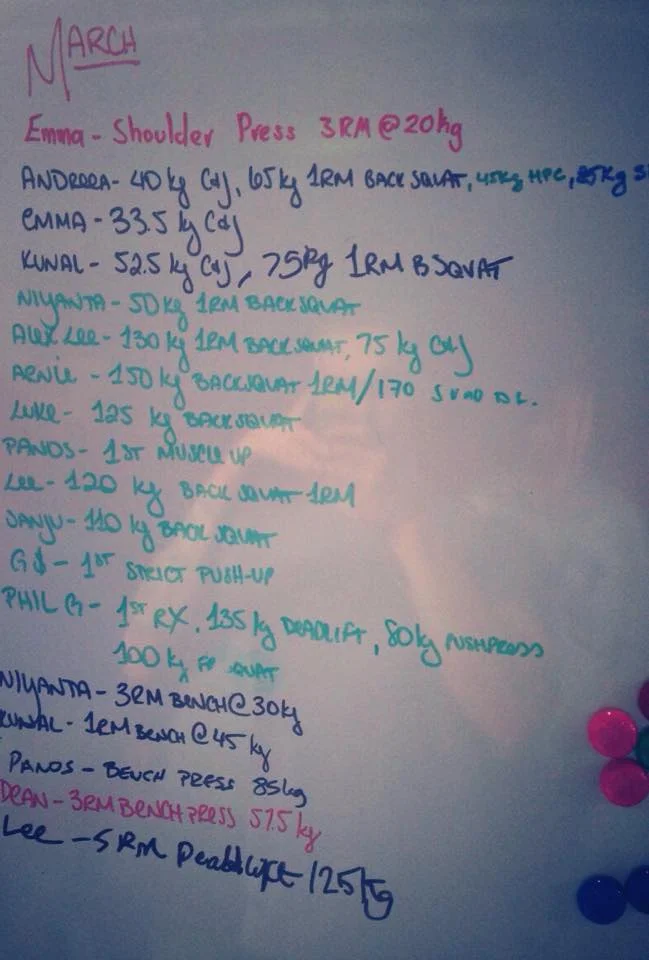 MARCH
Emma - Shoulder Press 3RM @ 20kg
ANDREEA - 40 kg C+J, 65kg 1RM BACK SQUAT, 45kg HPC, 85kg S
EMMA - 33.5 kg C+J
KUNAL - 52.5 kg C+J, 75kg 1RM B SQUAT
NIYANTA - 50kg 1RM BACK SQUAT
ALEX LEE - 130 kg 1RM BACK SQUAT, 75 kg C+J
ARNIE - 150 kg BACKSQUAT 1RM/170 SUMO DL.
LUKE - 125 kg BACKSQUAT
PANOS - 1ST MUSCLE UP
LEE - 120 kg BACK SQUAT 1RM
SANJU - 110 kg BACK SQUAT
G$ - 1ST STRICT PUSH-UP
PHIL G - 1ST RX. 135 kg DEADLIFT, 80kg PUSHPRESS
100 kg SQUAT
NIYANTA - 3RM BENCH @ 30kg
KUNAL - 1RM BENCH @ 45 kg
PANOS - BENCH PRESS 85kg
DEAN - 3RM BENCH PRESS 57.5 kg
Lee - 5RM Deadlift 125kg